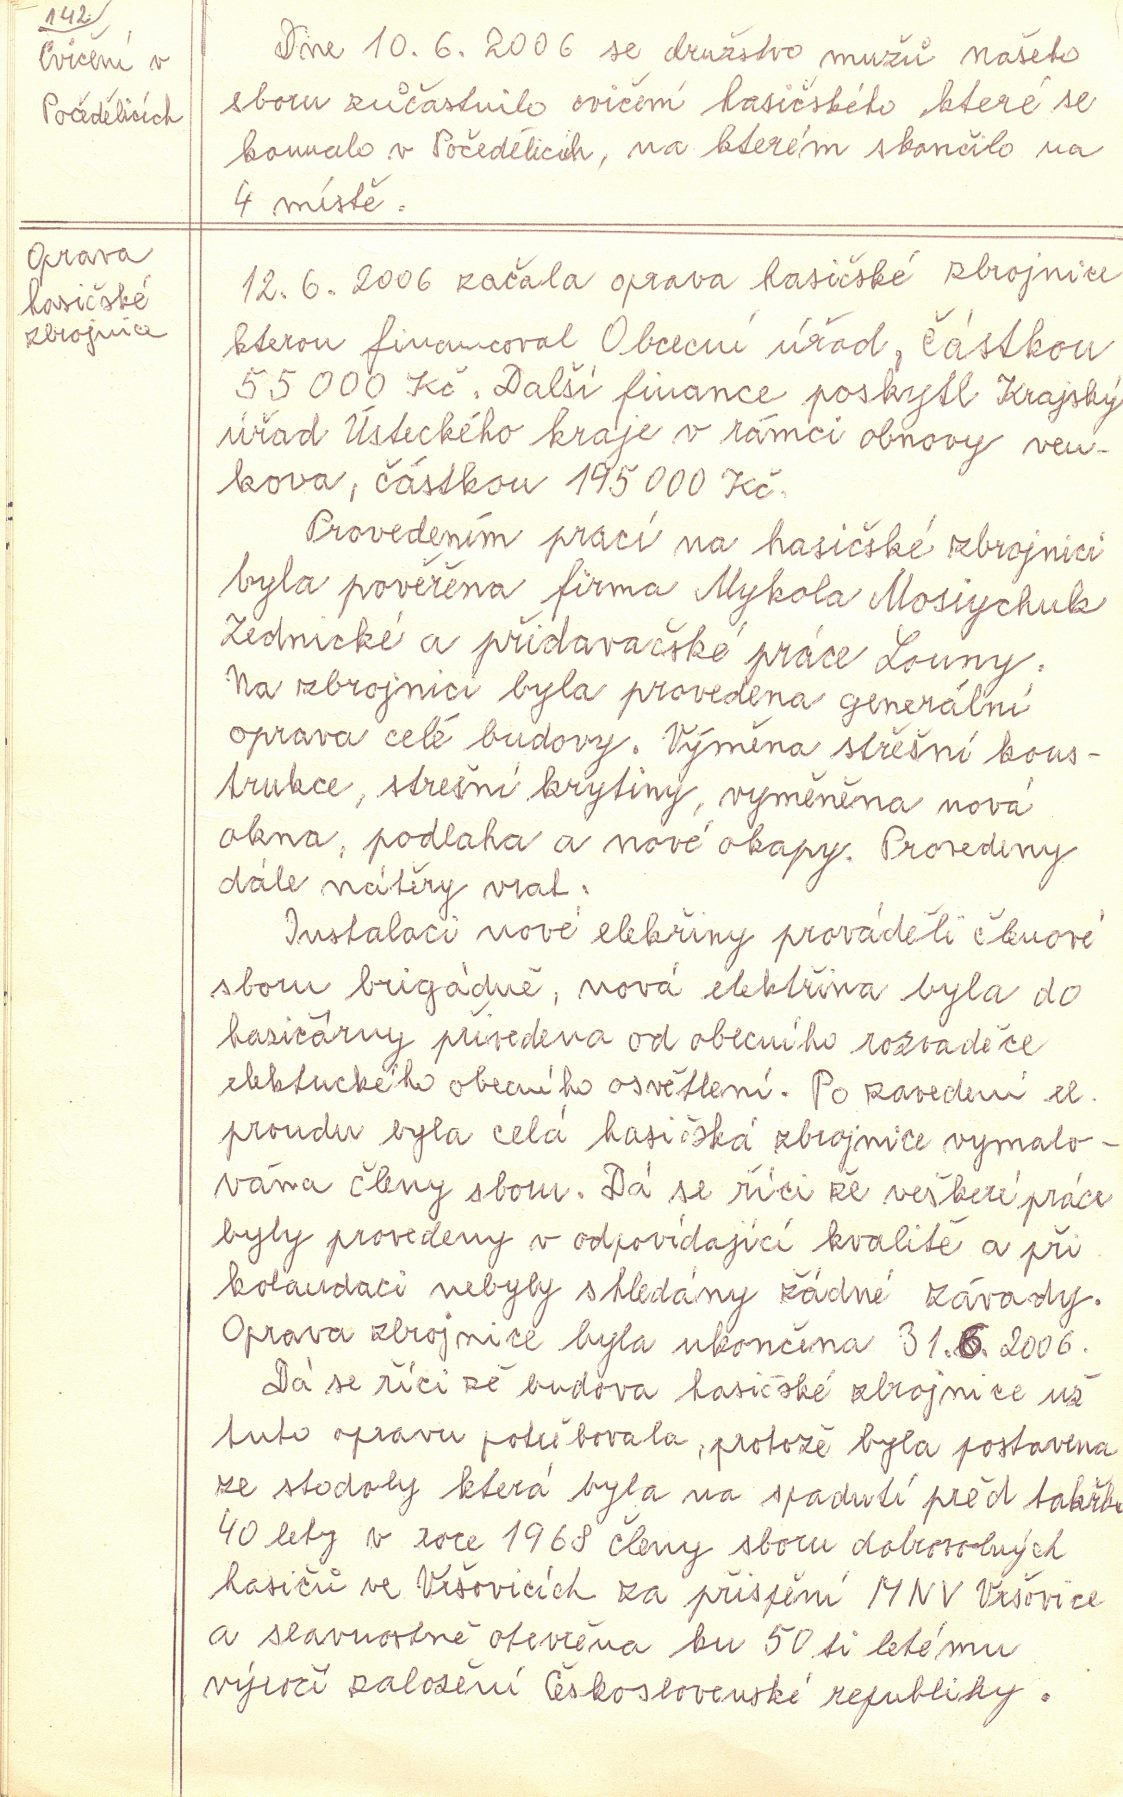 142.
Cvičení v
Počedělicích
Dne 10. 6. 2006 se družstvo mužů našeho
sboru zůčastnilo cvičení hasičského které se
konnalo v Počedělicích, na kterém skončilo na
4 místě.
Oprava
hasičské
zbrojnice
12. 6. 2006 začala oprava hasičské zbrojnice
kterou financoval Obcecní úřad, částkou
55 000 Kč. Další finance poskytl Krajský
úřad Ústeckého kraje v rámci obnovy ven-
kova, částkou 195 000 Kč.
Provedením prací na hasičské zbrojnici
byla pověřěna firma Mykola Mosiychuk
Zednické a přidavačské práce Louny.
Na zbrojnici byla provedena generální
oprava celé budovy. Výměna střěšní kons-
trukce, strešní krytiny, vyměněna nová
okna, podlaha a nové okapy. Provedeny
dále nátěry vrat.
Instalaci nové elekřiny prováděli členové
sboru brigádně, nová elektřina byla do
hasičárny přivedena od obecního rozvaděče
elektuckého obecního osvětlení. Po zavedení el.
proudu byla celá hasičská zbrojnice vymalo-
vána členy sboru. Dá se říci že veškeré práce
byly provedeny v odpovídající kvalitě a při
kolaudaci nebyly shledány žádné závady.
Oprava zbrojnice byla ukončena 31. 6. 2006.
Dá se říci žě budova hasičské zbrojnice už
tuto opravu potřebovala, protožě byla postavena
ze stodoly která byla na spadutí před takřka
40 lety v roce 1968 členy sboru dobrovolných
hasičů ve Vršovicích za přispění MNV Vršovice
a slavnostně otevřěna ku 50 ti letému
výročí založění Československé republiky.